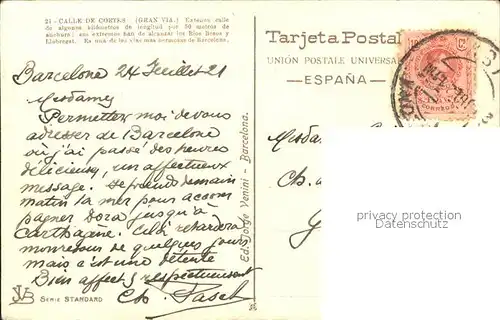 21 - CALLE DE CORTES (GRAN VIA.) Extensa calle
de algunos kilómetros de longitud por 50 metros de
anchura: sus extremos han de alcanzar los Rios Besos y
Llobregat. Es una de las vías mas hermosas de Barcelona.
Barcelona 24 Juillet 21
Mesdames
Permettez moi de vous
adresser de Barcelone
où j'ai passé des heures
délicieuses, un affectueux
message. Je prends demain
matin la mer pour accom
pagner Dora jusqu'à
Carthagène. Cela retardera
mon retour de quelques jours
mais c'est une détente
Bien affect & respectueusement
Ch. Pasch
JVB
SERIE STANDARD
Ed. Jorge Venini - Barcelona.
Tarjeta Postal
UNIÓN POSTALE UNIVERSA
ESPAÑA
CORREOS
Mesda
Ch.
privacy protection
Datenschutz